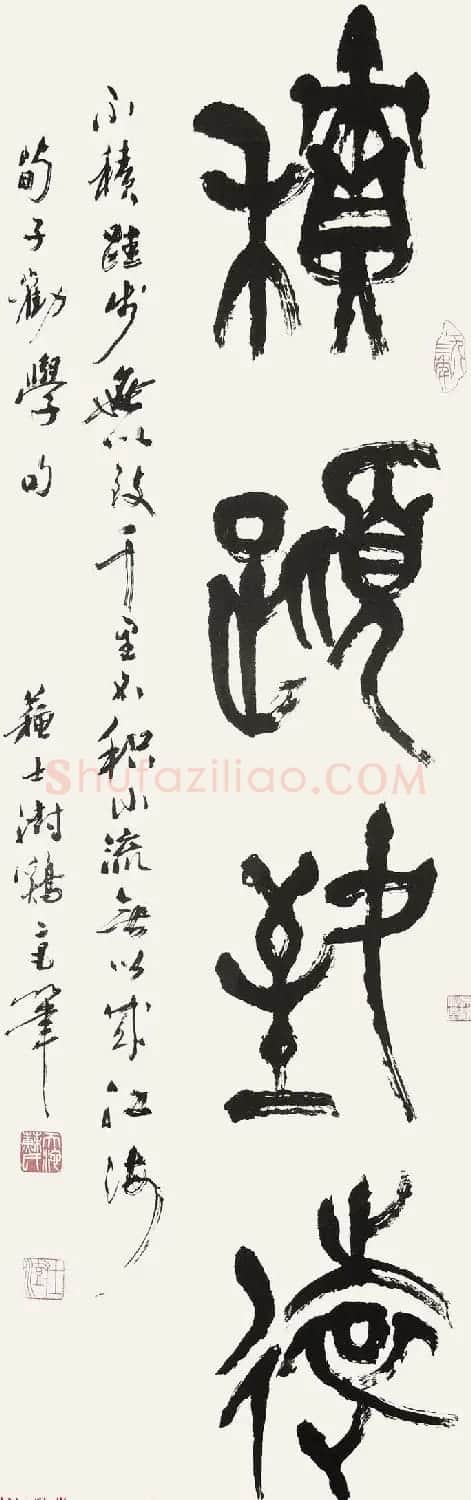 積蹞致遠
不積跬步無以致千里不积小流無以成江海
荀子勸學句 蘇士澍鷄毫筆
Shufaziliao.COM